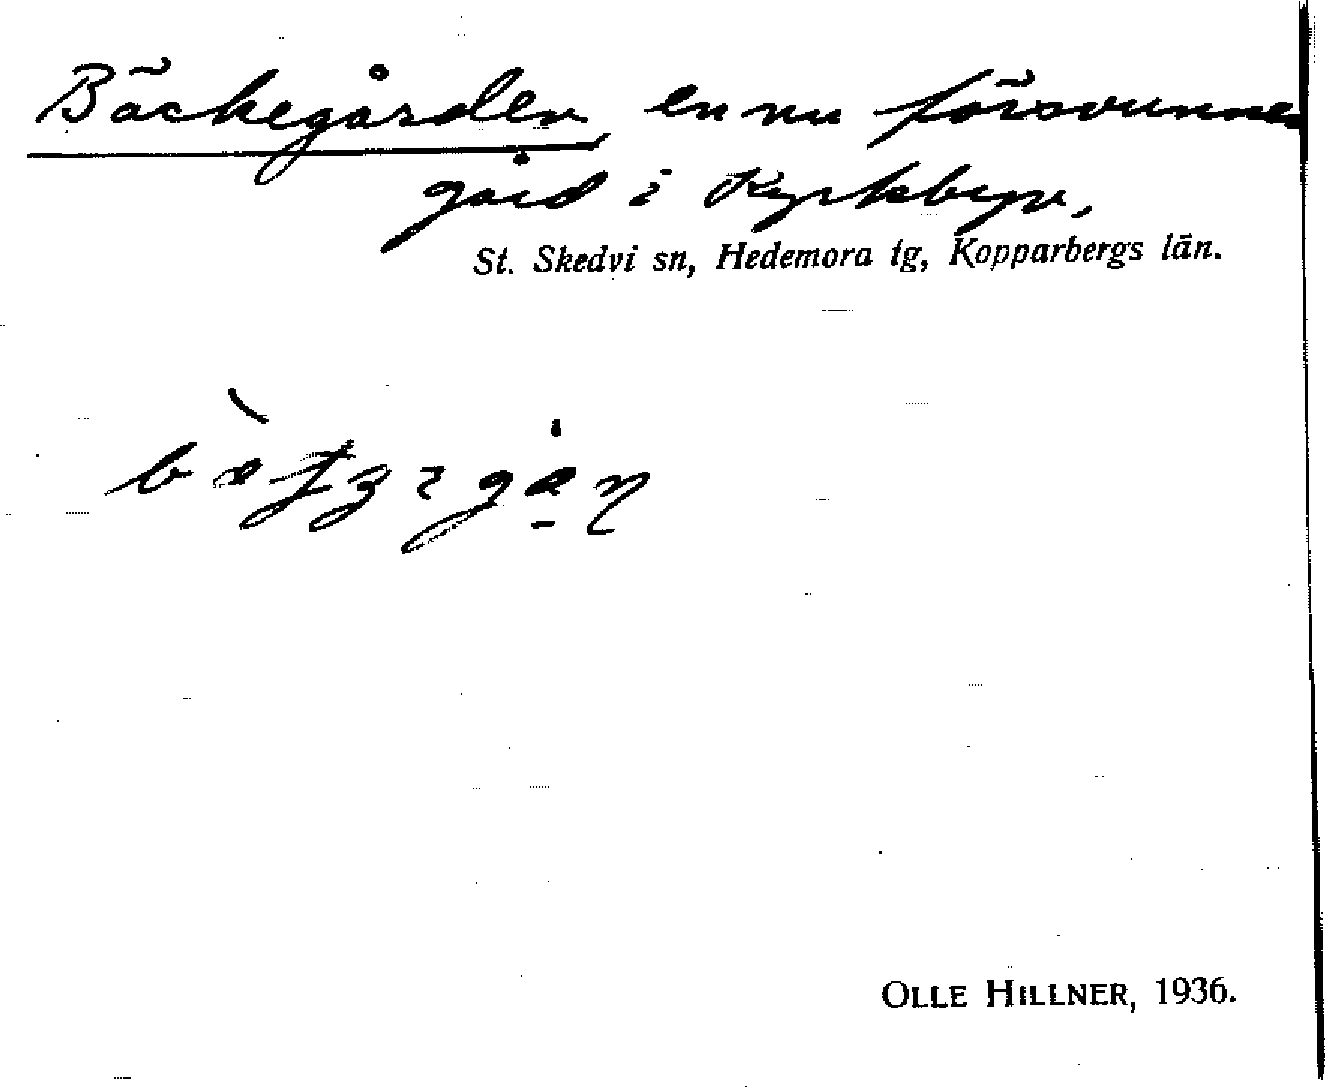 Bäckegården, en nu försvunnen
gård i Kyrkbyn,
St. Skedvi sn, Hedemora tg, Kopparbergs län.
OLLE HILLNER, 1936.